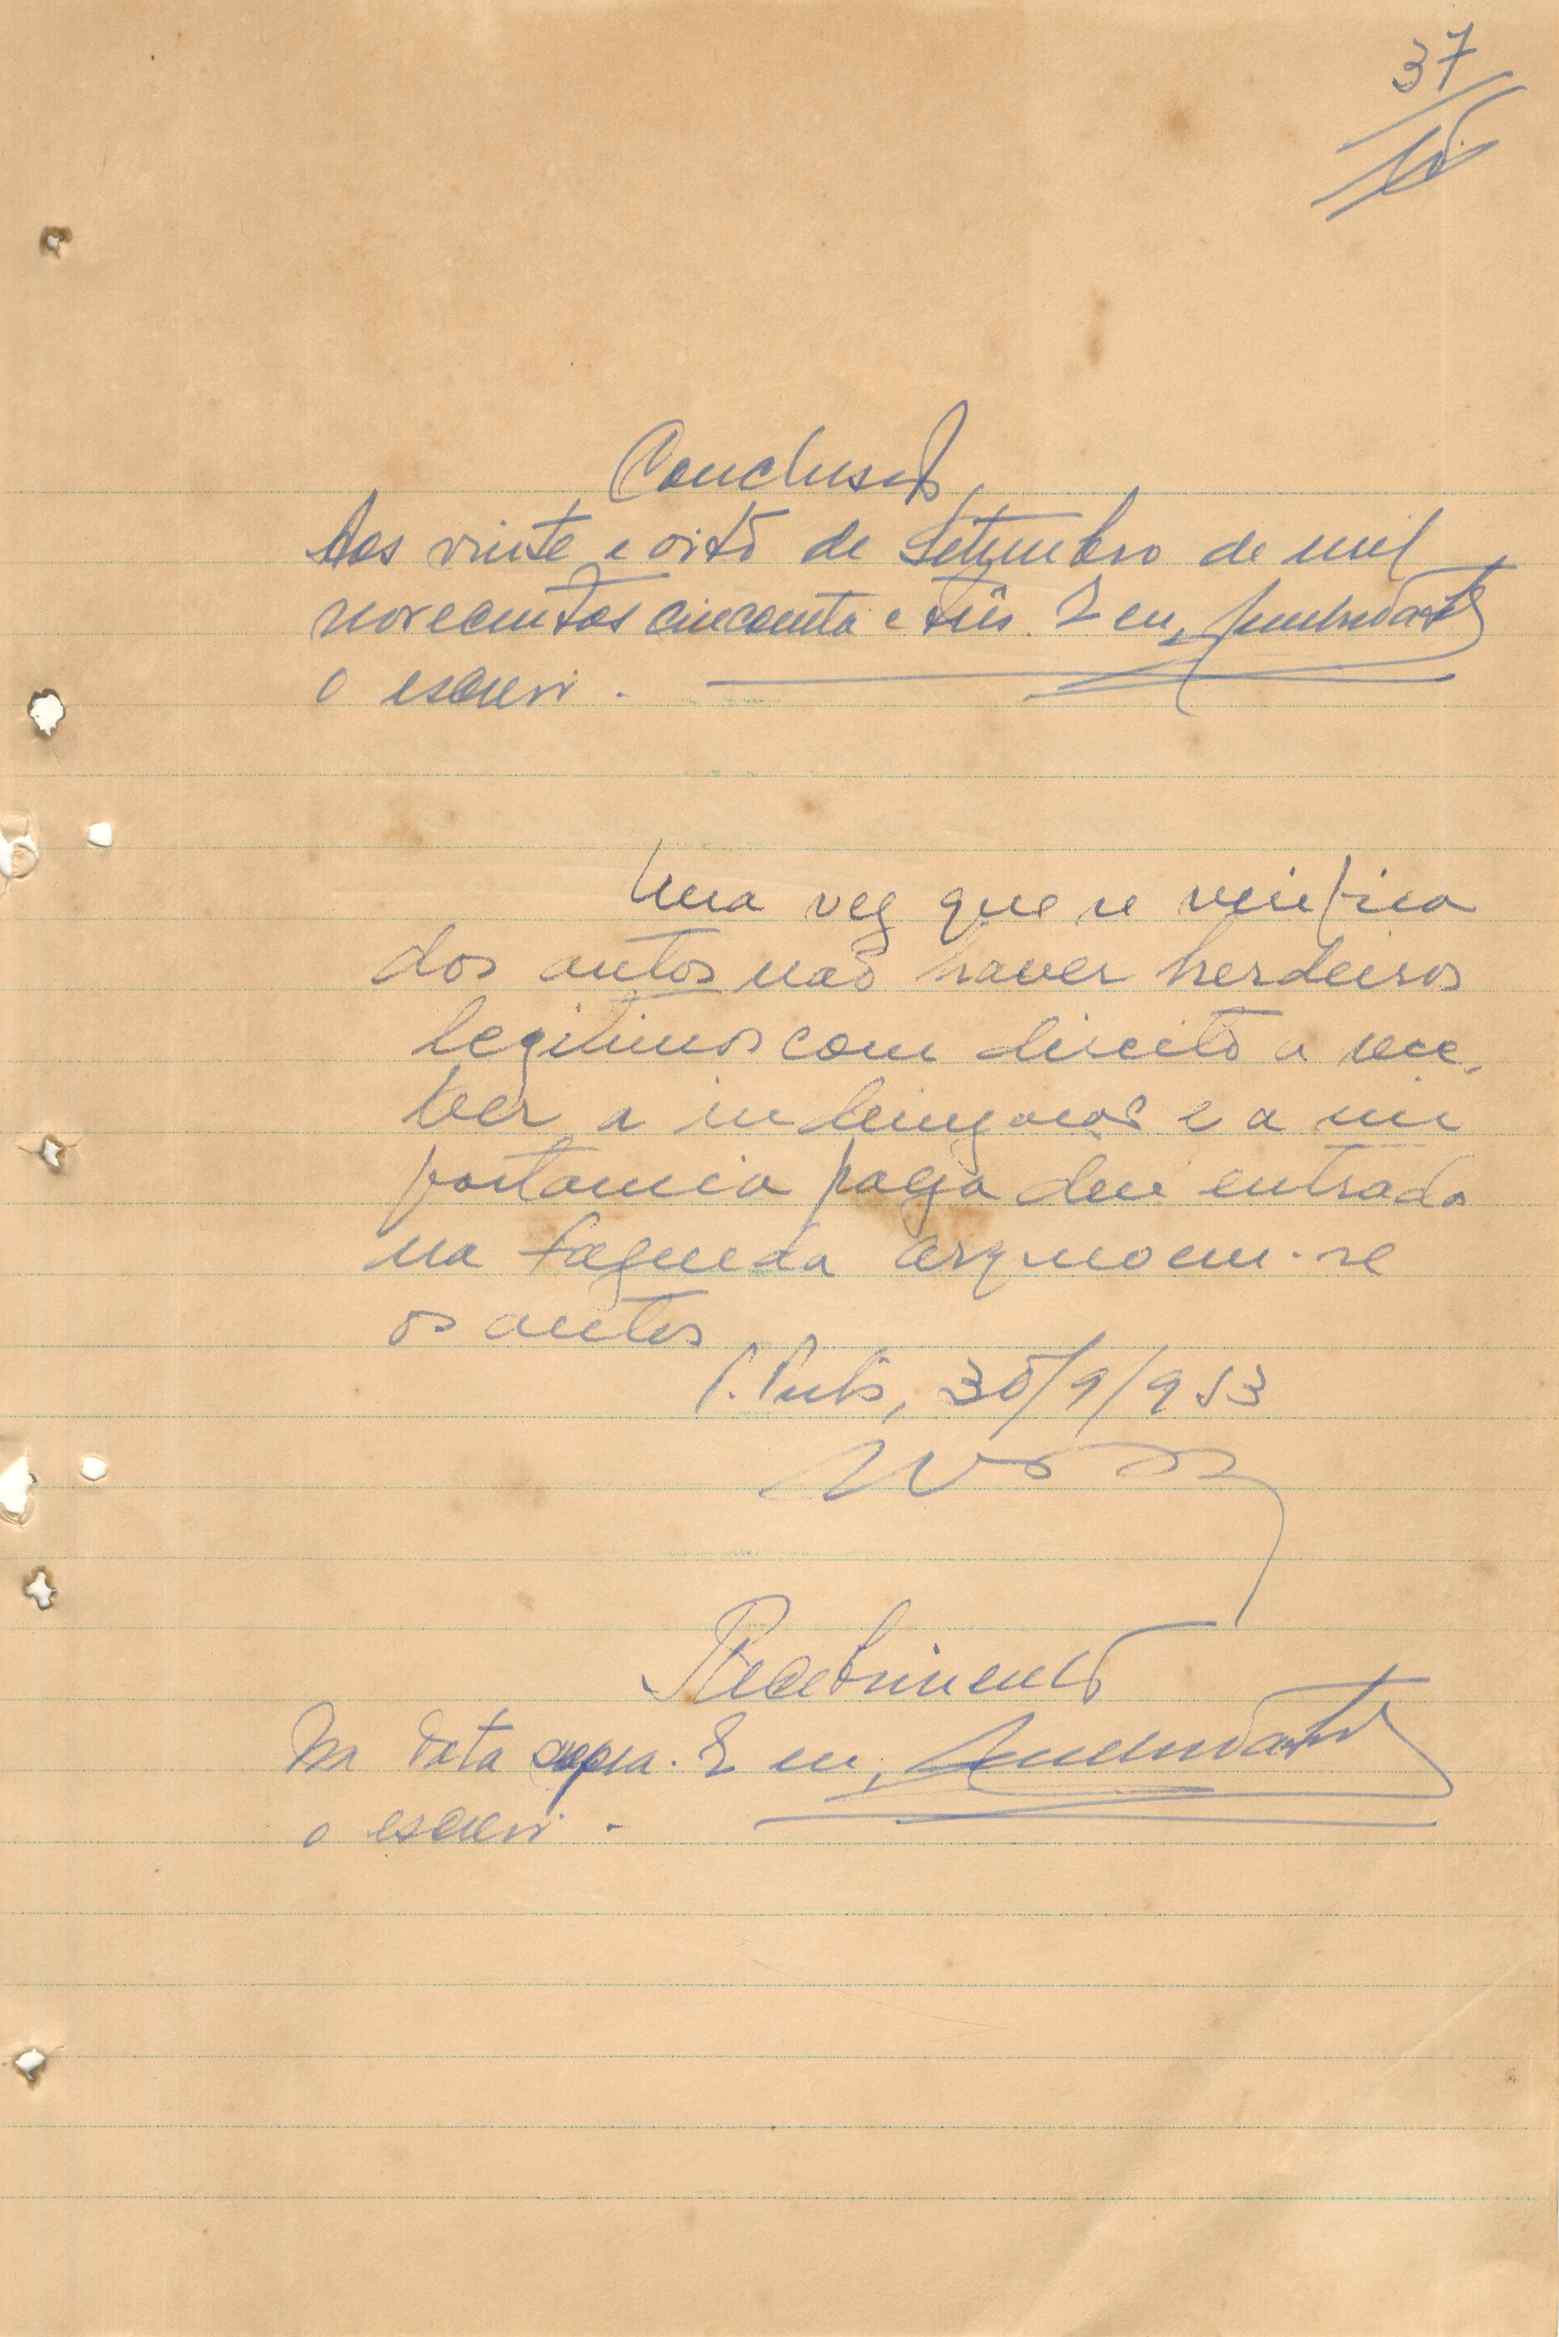 37
Conclusão
Aos vinte e oito de Setembro de mil
novecentos cincoenta e três. E eu,
o escrevi.
Uma vez que se verifica
dos autos não haver herdeiros
legitimos com direito a rece-
ber a indenização e a im
portancia paga deu entrada
na fazenda arquivem-se
os autos
30/9/953
Recebimento
Na data supra. E eu,
o escrevi.